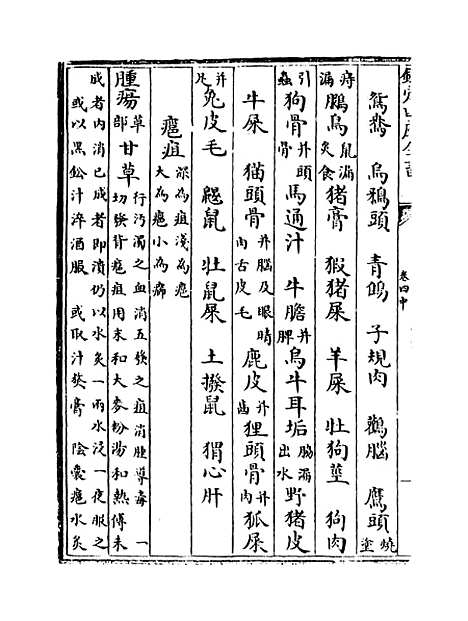 欽定四庫全書
卷四中
鴛鴦　烏鴉頭　青　子規肉　鸛腦　鷹頭燒塗
痔漏鵩鳥鼠漏炙食猪膏　猳猪屎　羊屎　牡狗莖　狗肉
引蟲狗骨并頭骨馬通汁　牛膽并脾烏牛耳垢脇漏出水野猪皮
牛屎　猫頭骨并腦及眼睛肉舌皮毛鹿皮并齒狸頭骨并肉狐屎
并足兔皮毛　鼴鼠　牡鼠屎　土撥鼠　猬心肝
癰疽深為疽淺為癰大為癰小為癤
腫瘍草部甘草行汚濁之血消五發之疽消腫導毒　一切發背癰疽用末和大麥粉湯和熱傅未
成者内消已成者即潰仍以水炙一兩水浸一夜服之
或以黑鉛汁淬酒服　或取汁熬膏　陰囊癰水炙